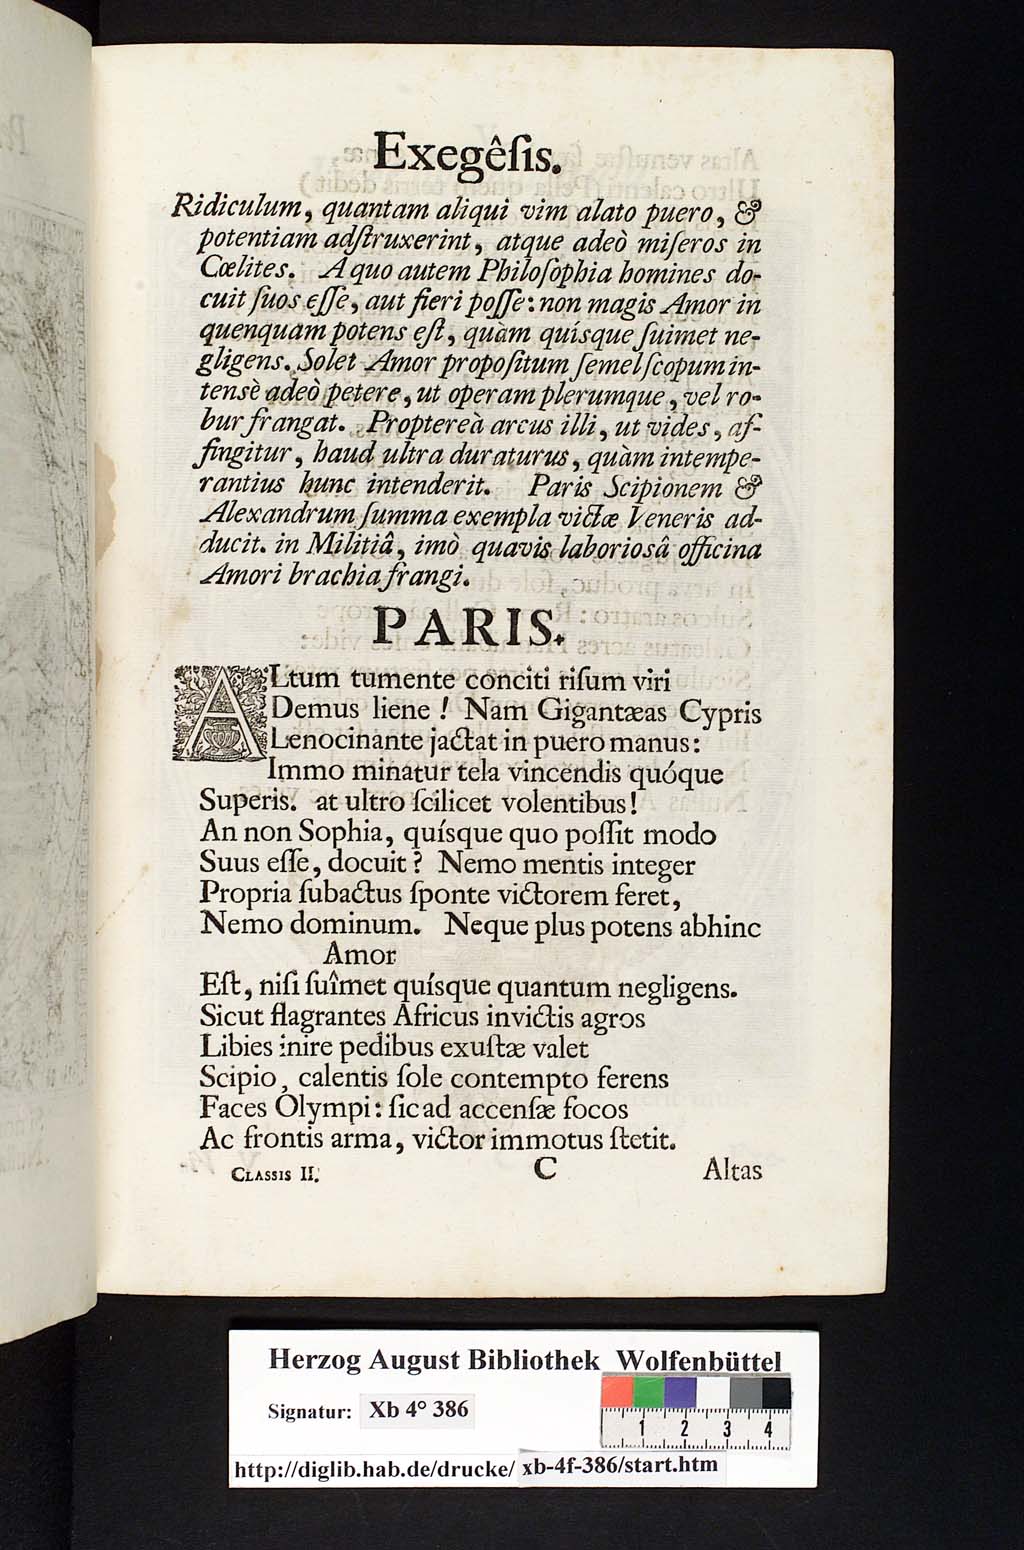 Exegêſis.
Ridiculum, quantam aliqui vim alato puero, &
potentiam adſtruxerint, atque adeò miſeros in
Cœlites. A quo autem Philoſophia homines do-
cuit ſuos eſſe, aut fieri poſſe: non magis Amor in
quenquam potens eſt, quàm quísque ſuimet ne-
gligens. Solet Amor propoſitum ſemel ſcopum in-
tensè adeò petere, ut operam plerumque, vel ro-
bur frangat. Proptereà arcus illi, ut vides, af-
fingitur, haud ultra duraturus, quàm intempe-
rantius hunc intenderit. Paris Scipionem &
Alexandrum ſumma exempla victæ Veneris ad-
ducit. in Militiâ, imò quavis laboriosâ officina
Amori brachia frangi.
PARIS.
ALtum tumente conciti riſum viri
Demus liene! Nam Gigantæas Cypris
Lenocinante jactat in puero manus:
Immo minatur tela vincendis quóque
Superis. at ultro ſcilicet volentibus!
An non Sophia, quísque quo poſſit modo
Suus eſſe, docuit? Nemo mentis integer
Propria ſubactus ſponte victorem feret,
Nemo dominum. Neque plus potens abhinc
Amor
Eſt, niſi ſuîmet quísque quantum negligens.
Sicut flagrantes Africus invictis agros
Libies inire pedibus exuſtæ valet
Scipio, calentis ſole contempto ferens
Faces Olympi: ſic ad accenſæ focos
Ac frontis arma, victor immotus ſtetit.
CLASSIS II. C Altas
Herzog August Bibliothek Wolfenbüttel
Signatur: Xb 4° 386
1 2 3 4
http://diglib.hab.de/drucke/ xb-4f-386/start.htm